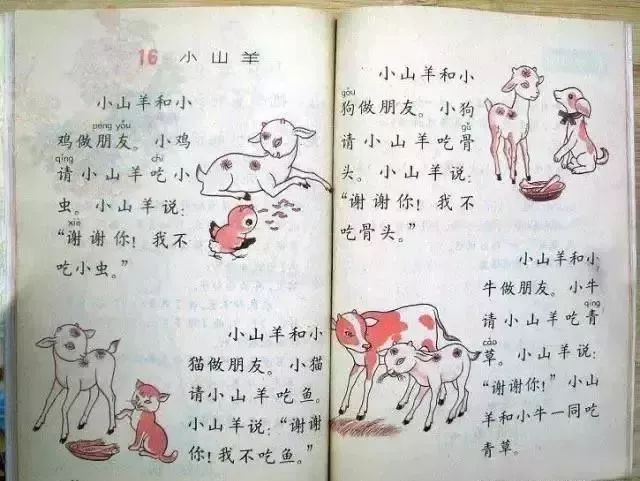 16 小山羊
小山羊和小
péng yǒu
鸡做朋友。小鸡
qǐng chī
请小山羊吃小
虫。小山羊说：
xiè
“谢谢你！我不
吃小虫。”
小山羊和小
猫做朋友。小猫
请小山羊吃鱼。
小山羊说：“谢谢
你！我不吃鱼。”
小山羊和小
gǒu
狗做朋友。小狗
gǔ
请小山羊吃骨
头。小山羊说：
“谢谢你！我不
吃骨头。”
小山羊和小
牛做朋友。小牛
qīng
请小山羊吃青
cǎo
草。小山羊说：
“谢谢你！”小山
羊和小牛一同吃
青草。